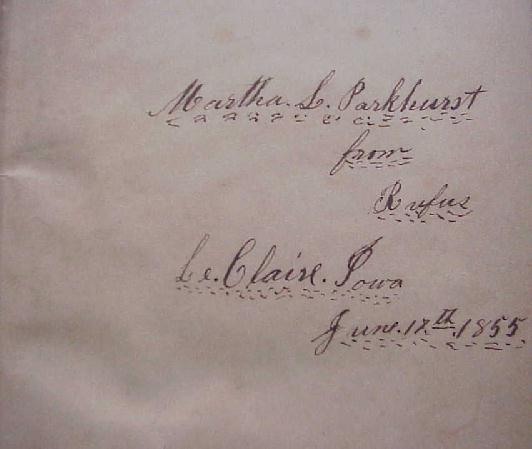 Martha. L. Parkhurst
from
Rufus
Le. Claire. Iowa
June. 12th. 1855